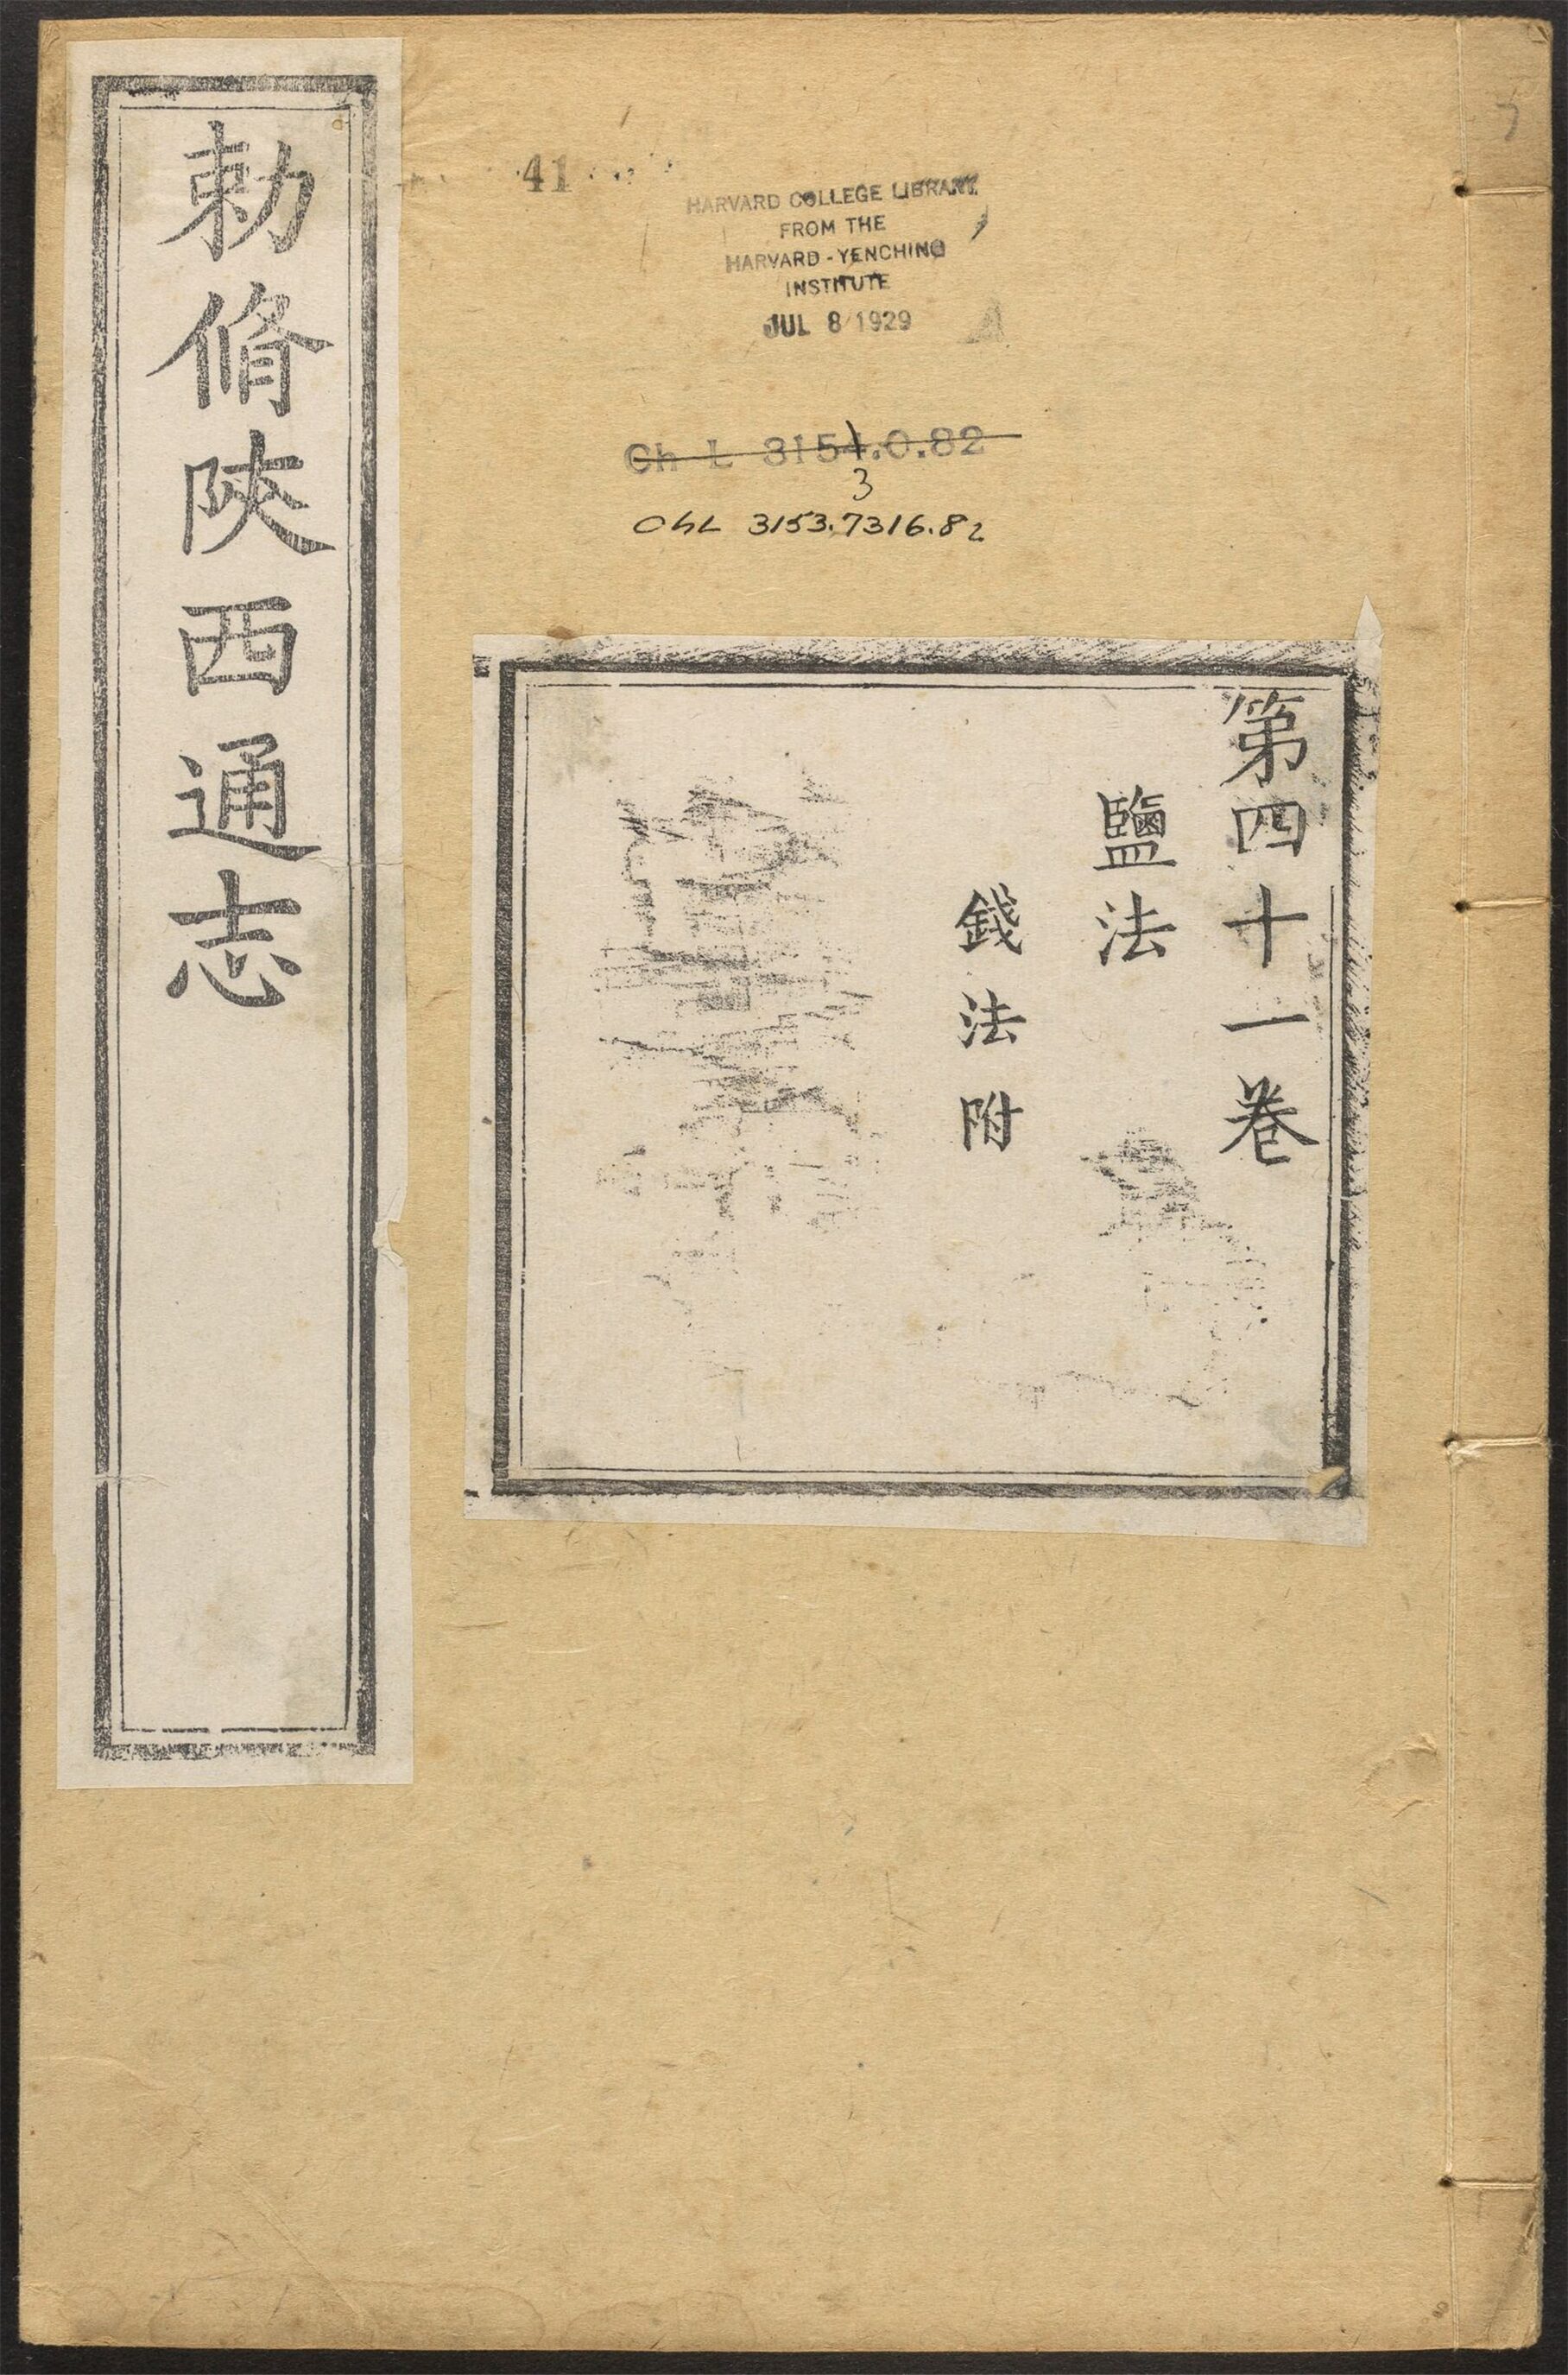 勅脩陜西通志
41
HARVARD COLLEGE LIBRARY
FROM THE
HARVARD-YENCHING
INSTITUTE
JUL 8 1929
Ch L 3154.0.82
3
ChL 3153.7316.82
第四十一卷
鹽法
錢法附